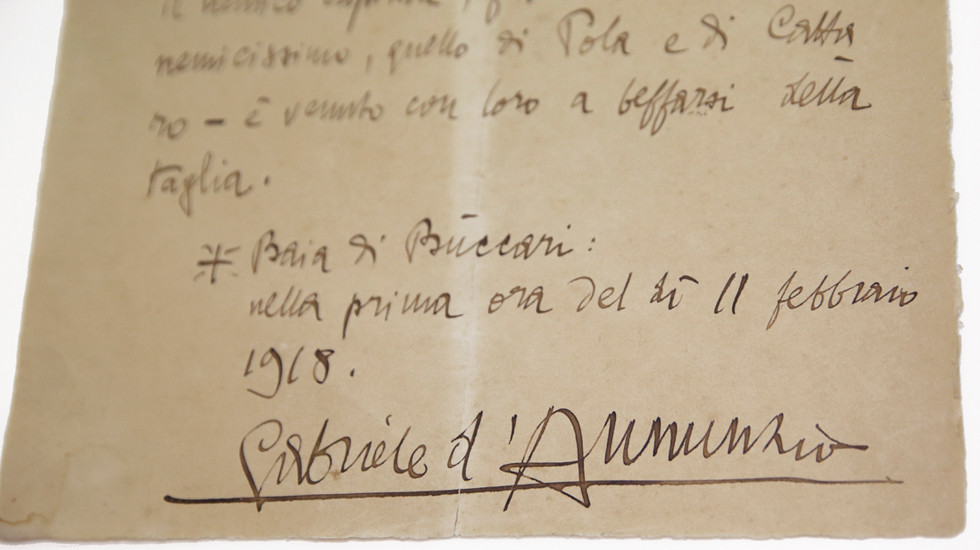 il nemico capitale,
nemicissimo, quello di Pola e di Catta
ro – è venuto con loro a beffarsi della
taglia.
* Baia di Bùccari:
nella prima ora del dì 11 febbraio
1918.
Gabriele d'Annunzio